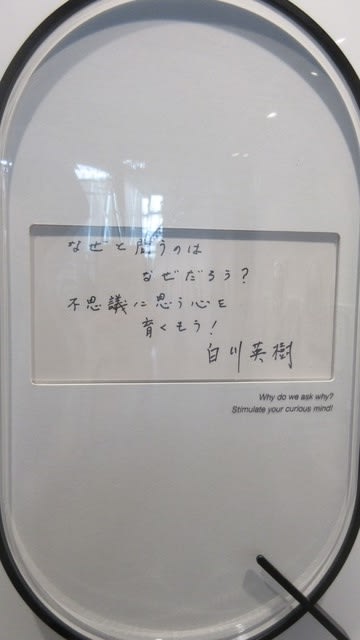 なぜと問うのは
なぜだろう?
不思議に思う心を
育くもう!
白川英樹
Why do we ask why?
Stimulate your curious mind!